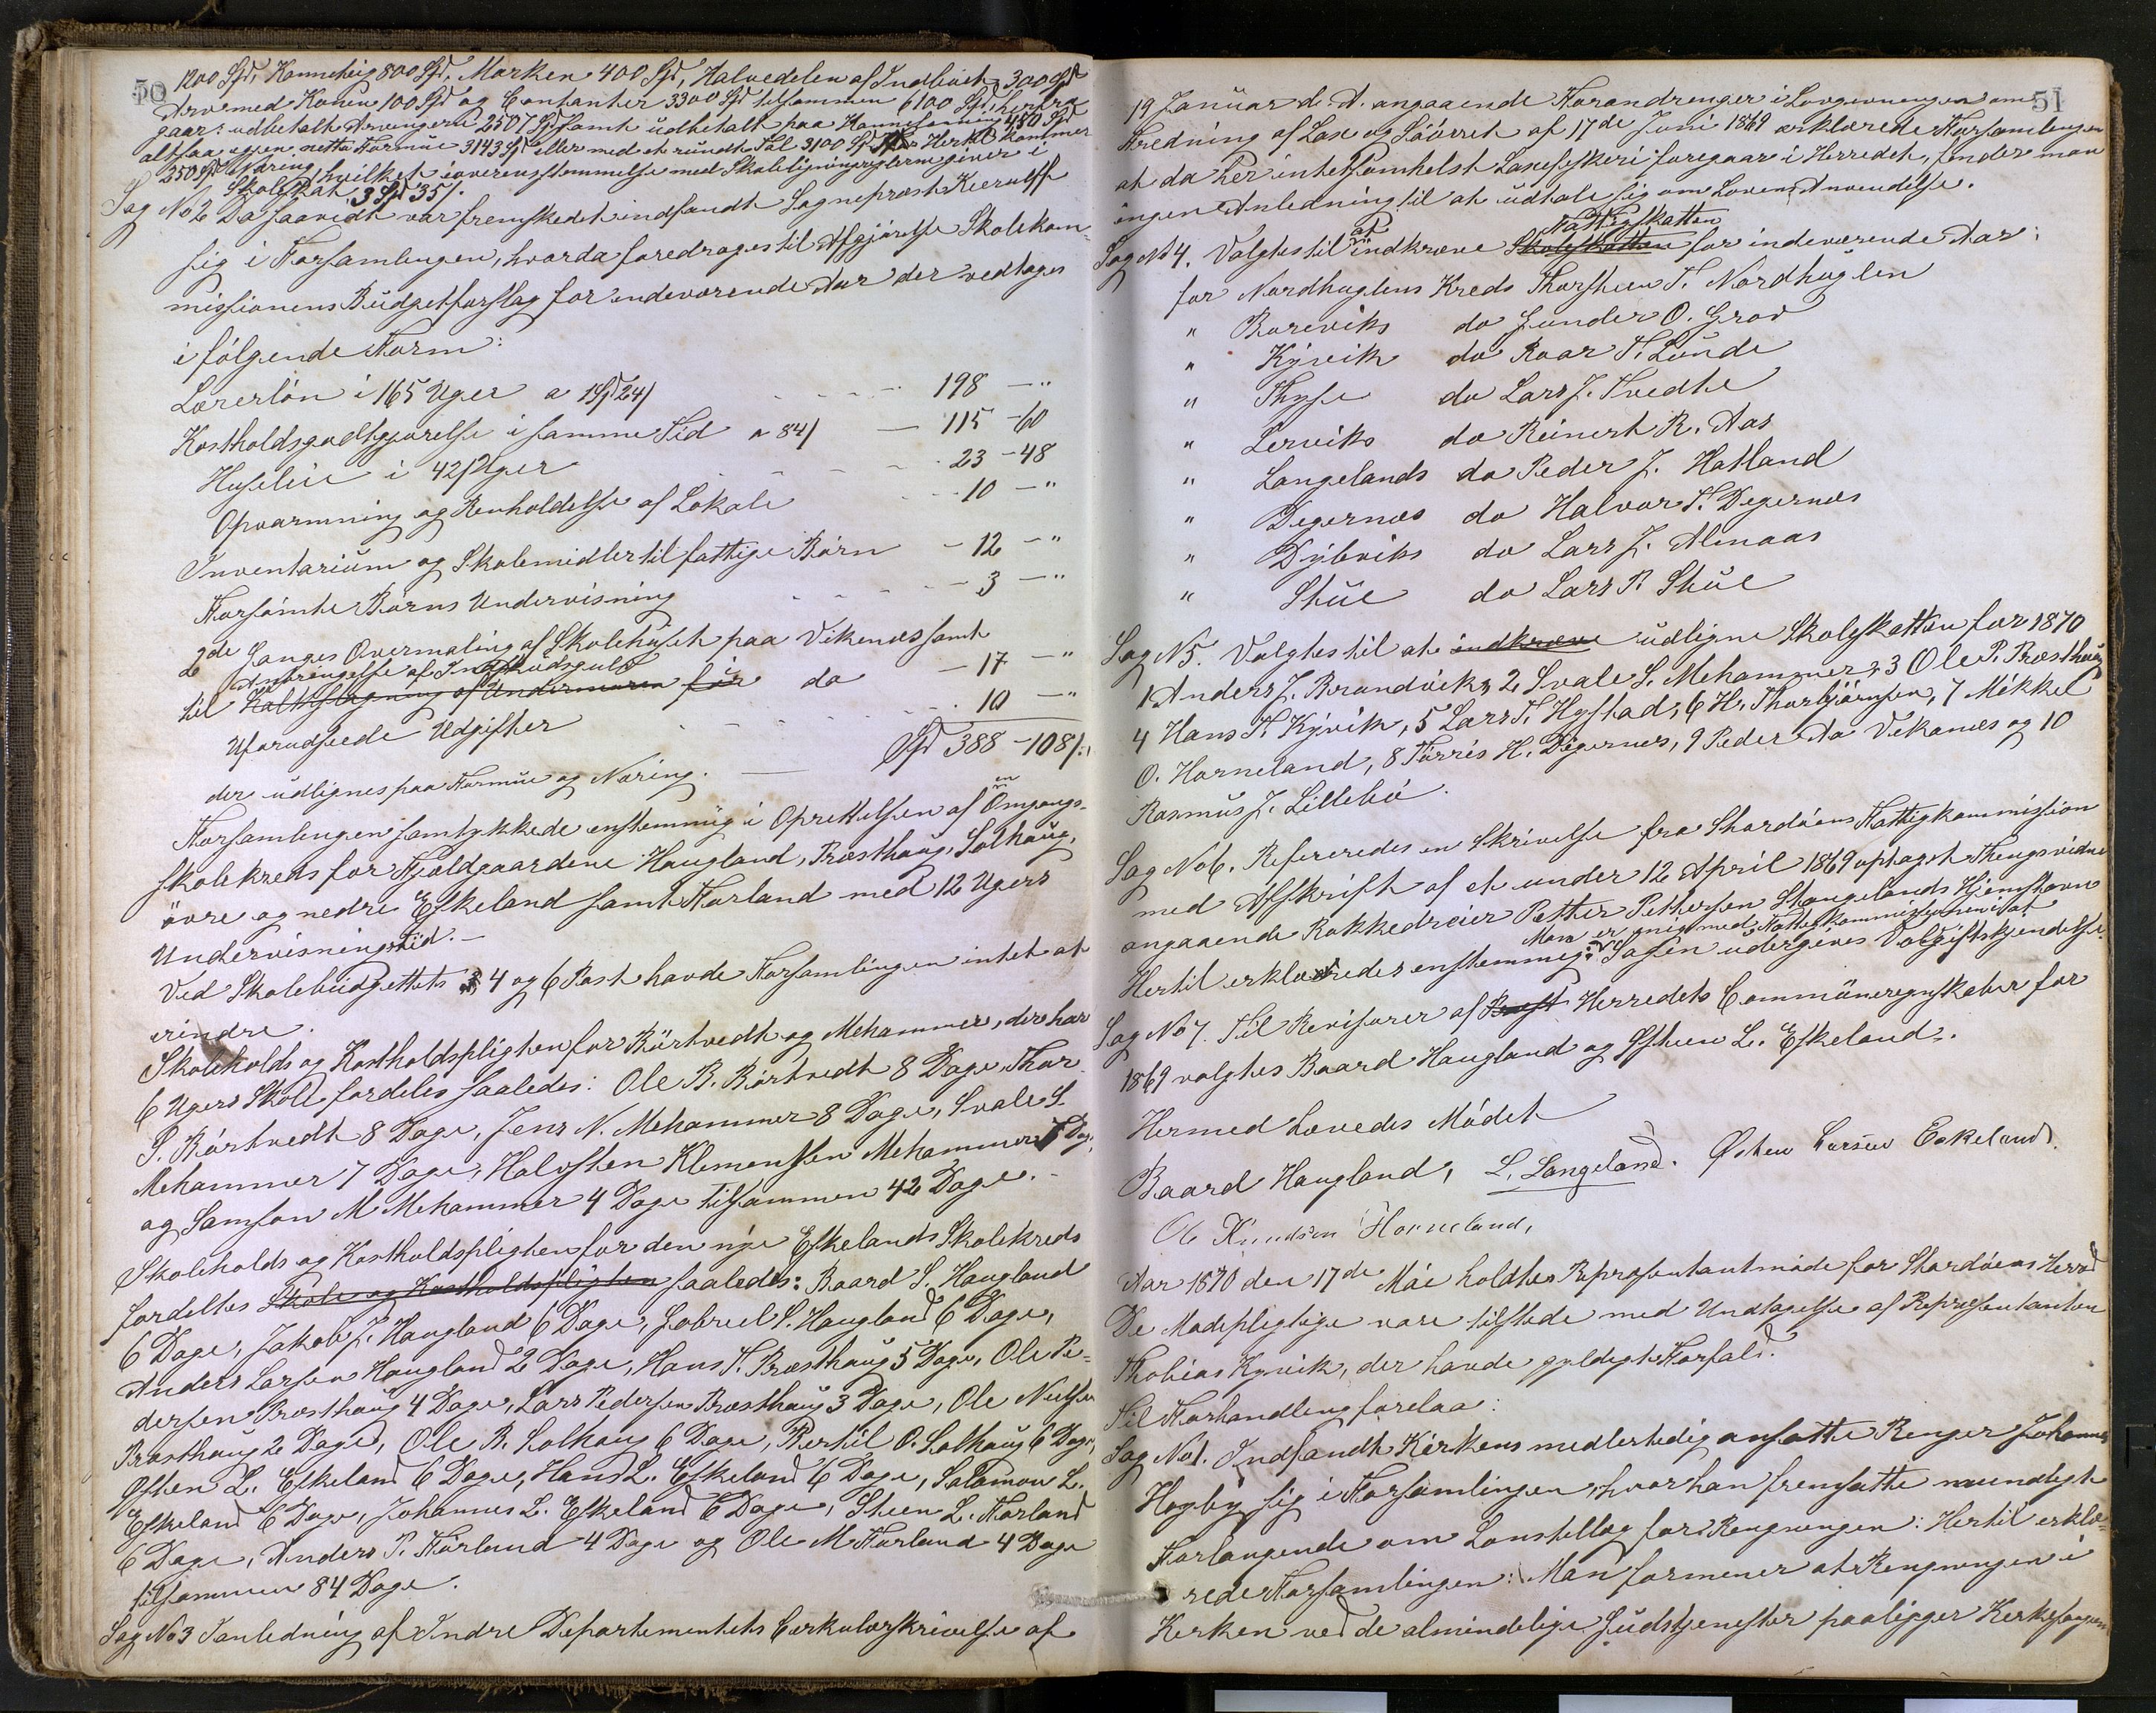 50
1200 Spd, Kanneheig 800 Spd, Marken 400 Spd, Halvedelen af Indbuet 300 Spd
Arv med Konen 100 Spd og Contanter 3300 Spd tilsammen 6100 Spd, herfra
gaar: udbetalt Arvingerne 2507 Spd samt udbetalt paa 450 Spd
altsaa egen netto Formue 3143 Spd eller med et rundt Tal 3100 Spd Hertil kommer
250 Spd Næring, hvilket i overensstemmelse med Skoleligningsreglerne giver i
Skoleskat 3 Spd 35 s.
Sag No 2 Da saavidt var fremskedet indfandt Sognepræst Kierulff
sig i Forsamlingen, hvorda foredroges til Afgjørelse Skolekom-
missionens Budgetforslag for indeværende Aar der vedtages
i følgende Form:
Lærerløn i 165 Uger a 1 Spd 24 s - - - 198 - "
Kostholdsgodtgjørelse i samme Tid a 84 s — 115 - 60
Husleie i 42 Uger - - - 23 - 48
Opvarmning og Renholdelse af Lokale - - - 10 - "
Inventarium og Skolemidler til fattige Børn - 12 - "
Forsømte Børns Undervisning - - - 3 - "
2de Ganges Overmaling af Skolehuset paa Vikenæs samt
Anbringelse af Indskudsgulv i
til Kalkslagning af Undermuren for do - 17 - "
Uforudseede Udgifter - - - 10 - "
der udlignes paa Formue og Næring. — Spd 388 - 108 s.
en
Forsamlingen samtykkede enstemmig i Oprettelsen af Omgangs-
skolekreds for Fjeldgaardene Haugland, Præsthaug, Solhaug,
øvre og nedre Eskeland samt Førland med 12 Ugers
Undervisningstid.—
Ved Skolebudgettets 4 og 6 Post havde Forsamlingen intet at
erindre.
Skoleholds og Kostholdspligten for Børtvedt og Mehammer, der har
6 Ugers Skole fordeles saaledes: Ole B. Børtvedt 8 Dage, Thor
S. Børtvedt 8 Dage, Jens N. Mehammer 8 Dage, Svale S.
Mehammer 7 Dage, Halvsten Klemensen Mehammer 7 Dage,
og Samson M Mehammer 4 Dage tilsammen 42 Dage.-
Skoleholds og Kostholdspligten for den nye Eskelands Skolekreds
fordeltes Skole og Kostholdspligten saaledes: Baard S. Haugland
6 Dage, Jakob J. Haugland 6 Dage, Gabriel S. Haugland 6 Dage,
Anders Larsen Haugland 2 Dage, Hans T. Præsthaug 5 Dage, Ole Pe-
dersen Præsthaug 4 Dage, Lars Pedersen Præsthaug 3 Dage, Ole Neelsen
Præsthaug 2 Dage, Ole B. Solhaug 6 Dage, Bertil O. Solhaug 6 Dage,
Østen L. Eskeland 6 Dage, Hans L. Eskeland 6 Dage, Salamon L.
Eskeland 6 Dage, Johannes L. Eskeland 6 Dage, Steen L. Førland
6 Dage, Anders P. Førland 4 Dage og Ole M Førland 4 Dage
tilsammen 84 Dage.
Sag No 3 I anledning af Indre Departementets Cirkulærskrivelse af
51
19 Januar d. A. angaaende Forandringer i Lovgivningen om
Fredning af Lax og Søørret af 17de Juni 1869 erklærede Forsamlingen
at da her intetsomhelst Laxefiskeri foregaar i Herredet, finder man
ingen Anledning til at udtale sig om Lovens Anvendelse.
at Fattigskatten
Sag No 4. Valgtes til indkræve Skoleskatten for indeværende Aar:
for Nordhuglens Kreds Thorsteen T. Nordhuglen
" Boreviks do Gunder O. Grov
" Kyvik do Roar T. Lunde
" Thyse do Lars J. Tvedte
" Lerviks do Reinert R. Aas
" Langelands do Peder J. Hatland
" Degernæs do Halvor T. Degernæs
" Dybviks do Lars J. Almaas
" Stue do Lars P. Stue
Sag N 5. Valgtes til at indkræve udligne Skoleskatten for 1870
1 Anders J. Brandvik, 2 Svale S. Mehammer, 3 Ole P. Præsthaug
4 Hans K Kyvik, 5 Lars T. Hystad, 6 H. Thorbjørnsen, 7 Mikkel
O. Horneland, 8 Tørris H. Digernes, 9 Peder Aa Vikanæs og 10
Rasmus J. Lillebø.
Sag No 6. Refereredes en Skrivelse fra Stordøens Fattigkommission
med Afskrift af et under 12 April 1869 optaget Thingsvidne
angaaende Rokkedreier Petter Pettersen Stangelands Hjemstavn
Man er enig med Fattigkommissionen i at
Hertil erklæredes enstemmig: Sagen udergives Voldgiftskjendelse.
Sag No 7. Til Revisorer af Herredets Communeregnskaber for
1869 valgtes Baard Haugland og Østeen L. Eskeland.
Hermed hævedes Mødet
Baard Haugland, L. Langeland. Østen Larsen Eskeland.
Ole Knudsen Horneland,
Aar 1870 den 17de Mai holdtes Repræsentantmøde for Stordøens Herred
De Mødepligtige vare tilstede med Undtagelse af Repræsentanten
Thobias Kyvik, der havde gyldigt Forfald.
Til Forhandling forelaa:
Sag No 1. Indfandt Kirkens midlertidig ansatte Ringer Johannes
Høgby sig i Forsamlingen, hvor han fremsatte mundtligt
Forlangende om Lønstillæg for Ringningen: Hertil erklæ-
rede Forsamlingen: Man formener at Ringningen i
Kirken ved de almindelige Gudstjenester paaligger Kirkesangeren